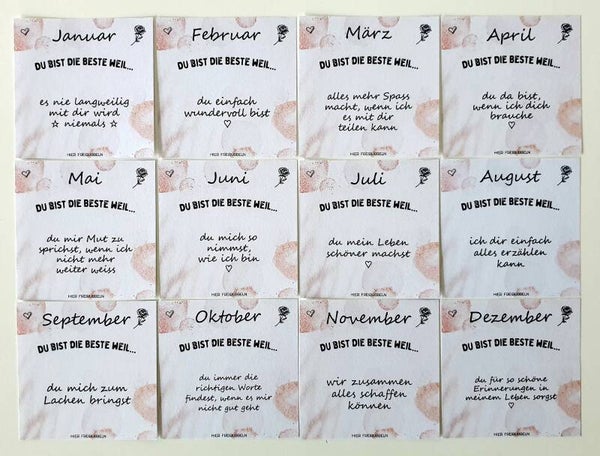 Januar
DU BIST DIE BESTE WEIL...
es nie langweilig
mit dir wird
☆ niemals ☆
HIER FREIRUBBELN
Februar
DU BIST DIE BESTE WEIL...
du einfach
wundervoll bist
♡
März
DU BIST DIE BESTE WEIL...
alles mehr Spass
macht, wenn ich
es mit dir
teilen kann
HIER FREIRUBBELN
April
DU BIST DIE BESTE WEIL...
du da bist,
wenn ich dich
brauche
♡
Mai
DU BIST DIE BESTE WEIL...
du mir Mut zu
sprichst, wenn ich
nicht mehr
weiter weiss
HIER FREIRUBBELN
Juni
DU BIST DIE BESTE WEIL...
du mich so
nimmst,
wie ich bin
♡
HIER FREIRUBBELN
Juli
DU BIST DIE BESTE WEIL...
du mein Leben
schöner machst
♡
HIER FREIRUBBELN
August
DU BIST DIE BESTE WEIL...
ich dir einfach
alles erzählen
kann
HIER FREIRUBBELN
September
DU BIST DIE BESTE WEIL...
du mich zum
Lachen bringst
HIER FREIRUBBELN
Oktober
DU BIST DIE BESTE WEIL...
du immer die
richtigen Worte
findest, wenn es mir
nicht gut geht
HIER FREIRUBBELN
November
DU BIST DIE BESTE WEIL...
wir zusammen
alles schaffen
können
HIER FREIRUBBELN
Dezember
DU BIST DIE BESTE WEIL...
du für so schöne
Erinnerungen in
meinem Leben sorgst
♡
HIER FREIRUBBELN